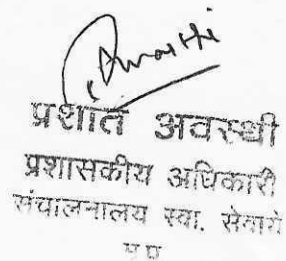 Awasthi
प्रशांत अवस्थी
प्रशासकीय अधिकारी
संचालनालय स्वा. सेवायें
म प्र